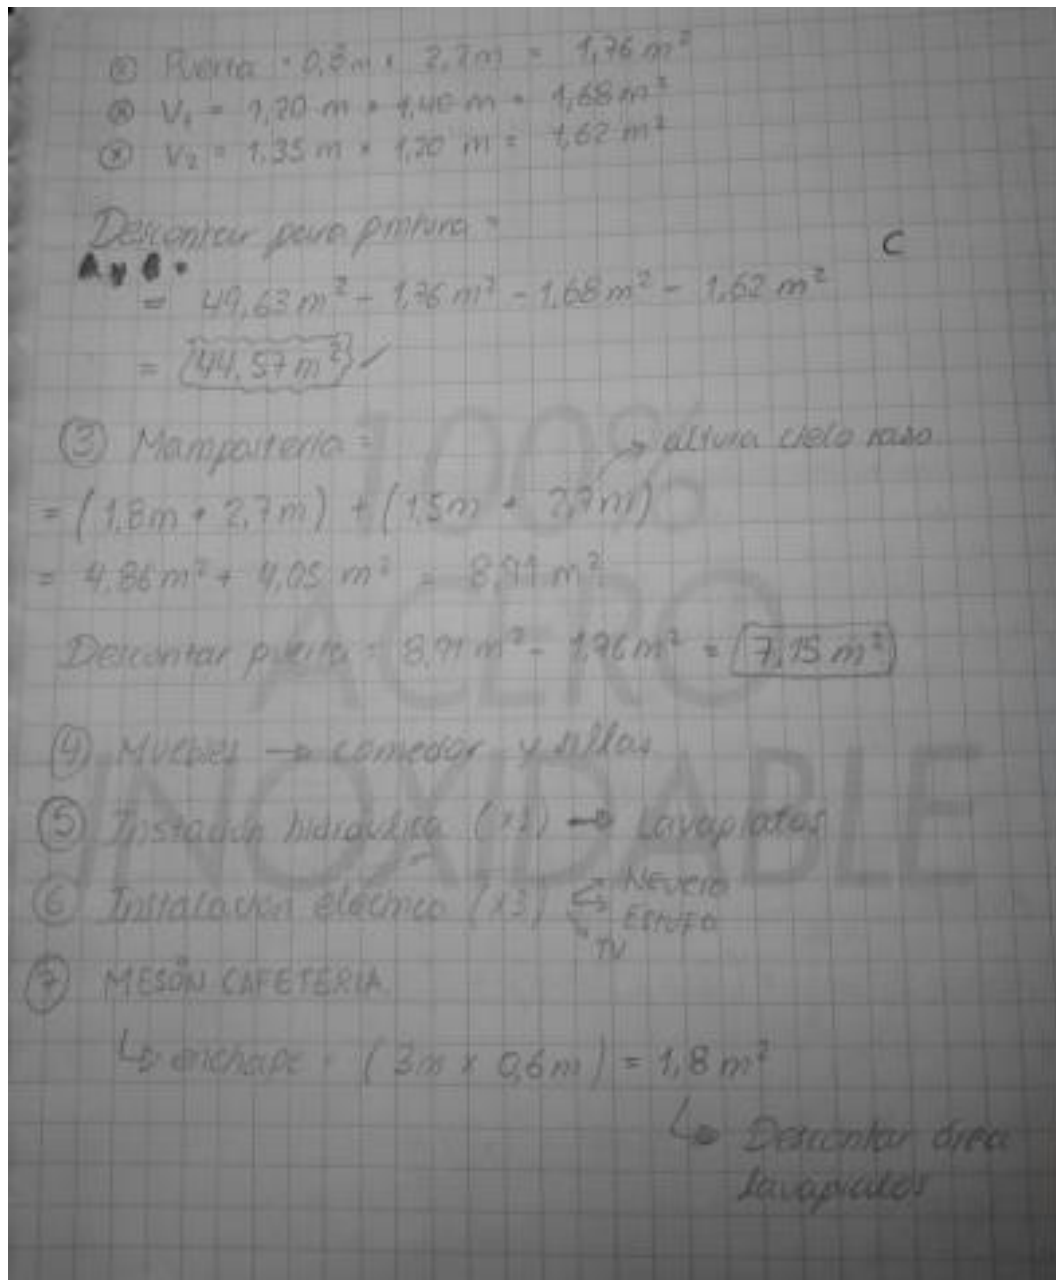 ⊗ Puerta = 0,8m × 2,2m = 1,76 m²
⊗ V₁ = 1,20 m * 1,40 m = 1,68 m²
⊗ V₂ = 1,35 m * 1,20 m = 1,62 m²
Descontar para pintura =
C
A y B.
= 49,63 m² - 1,76 m² - 1,68 m² - 1,62 m²
= 44,57 m² ✓
③ Mampostería =
→ altura cielo raso
= (1,8m * 2,7m) + (1,5m * 2,7m)
= 4,86 m² + 4,05 m² = 8,91 m²
Descontar puerta = 8,91 m² - 1,76 m² = 7,15 m²
④ Muebles → comedor y sillas
⑤ hidráulica → Lavaplatos
⑥ Instalación eléctrica (x3)
→ NEVERA
→ ESTUFA
→ TV
⑦ MESÓN CAFETERIA
↳ enchape = (3m × 0,6m) = 1,8 m²
↳ Descontar área
lavaplatos
100%
ACERO
INOXIDABLE